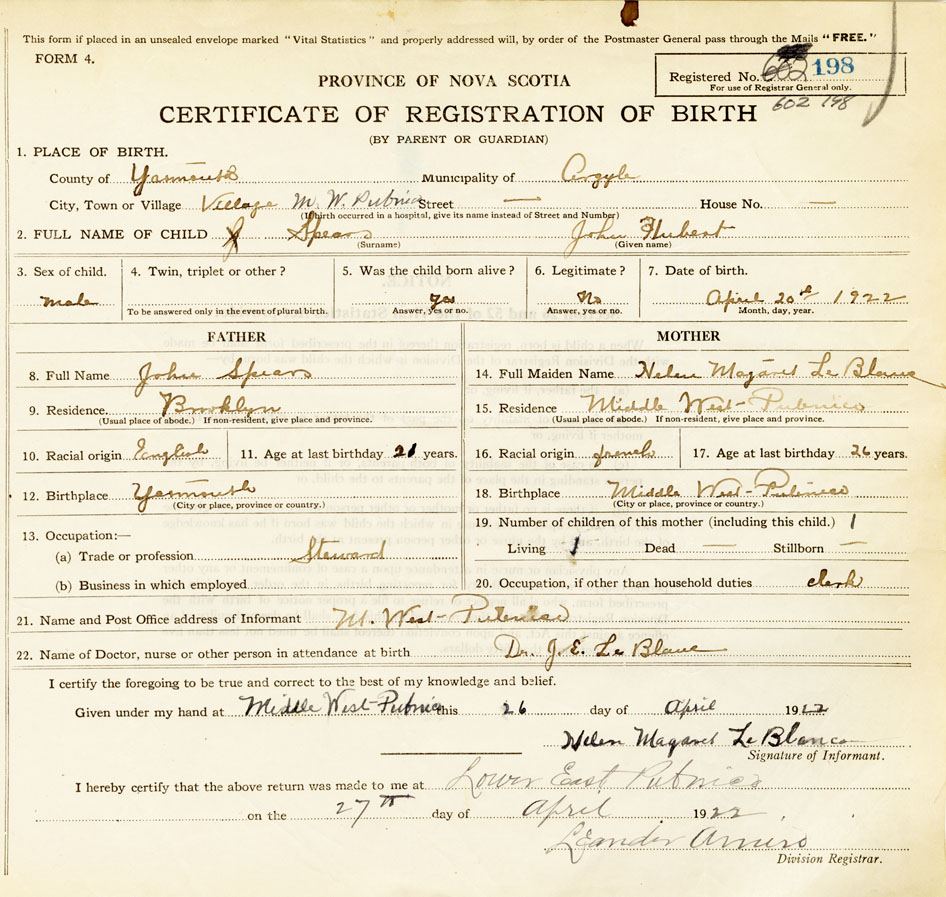 This form if placed in an unsealed envelope marked "Vital Statistics" and properly addressed will, by order of the Postmaster General pass through the Mails "FREE."
FORM 4.
Registered No. 602 198
For use of Registrar General only.
602 198
PROVINCE OF NOVA SCOTIA
CERTIFICATE OF REGISTRATION OF BIRTH
(BY PARENT OR GUARDIAN)
1. PLACE OF BIRTH.
County of Yarmouth Municipality of Argyle
City, Town or Village Village M. W. Pubnico Street — House No. —
(If birth occurred in a hospital, give its name instead of Street and Number)
2. FULL NAME OF CHILD Spears John Hubert
(Surname) (Given name)
3. Sex of child. 4. Twin, triplet or other? 5. Was the child born alive? 6. Legitimate? 7. Date of birth.
male yes No April 20th 1922
To be answered only in the event of plural birth. Answer, yes or no. Answer, yes or no. Month, day, year.
FATHER MOTHER
8. Full Name John Spears 14. Full Maiden Name Helen Magaret Le Blanc
9. Residence. Brooklyn 15. Residence Middle West-Pubnico
(Usual place of abode.) If non-resident, give place and province. (Usual place of abode.) If non-resident, give place and province.
10. Racial origin English 11. Age at last birthday 21 years. 16. Racial origin french 17. Age at last birthday 26 years.
12. Birthplace Yarmouth 18. Birthplace Middle West-Pubnico
(City or place, province or country.) (City or place, province or country.)
13. Occupation:— 19. Number of children of this mother (including this child.) 1
(a) Trade or profession Steward Living 1 Dead — Stillborn —
(b) Business in which employed 20. Occupation, if other than household duties clerk
21. Name and Post Office address of Informant M. West-Pubnico
22. Name of Doctor, nurse or other person in attendance at birth Dr. J. E. Le Blanc
I certify the foregoing to be true and correct to the best of my knowledge and belief.
Given under my hand at Middle West-Pubnico this 26 day of April 1922
Helen Magaret Le Blanc
Signature of Informant.
I hereby certify that the above return was made to me at Lower East Pubnico
on the 27th day of April 1922
Leander Amiro
Division Registrar.